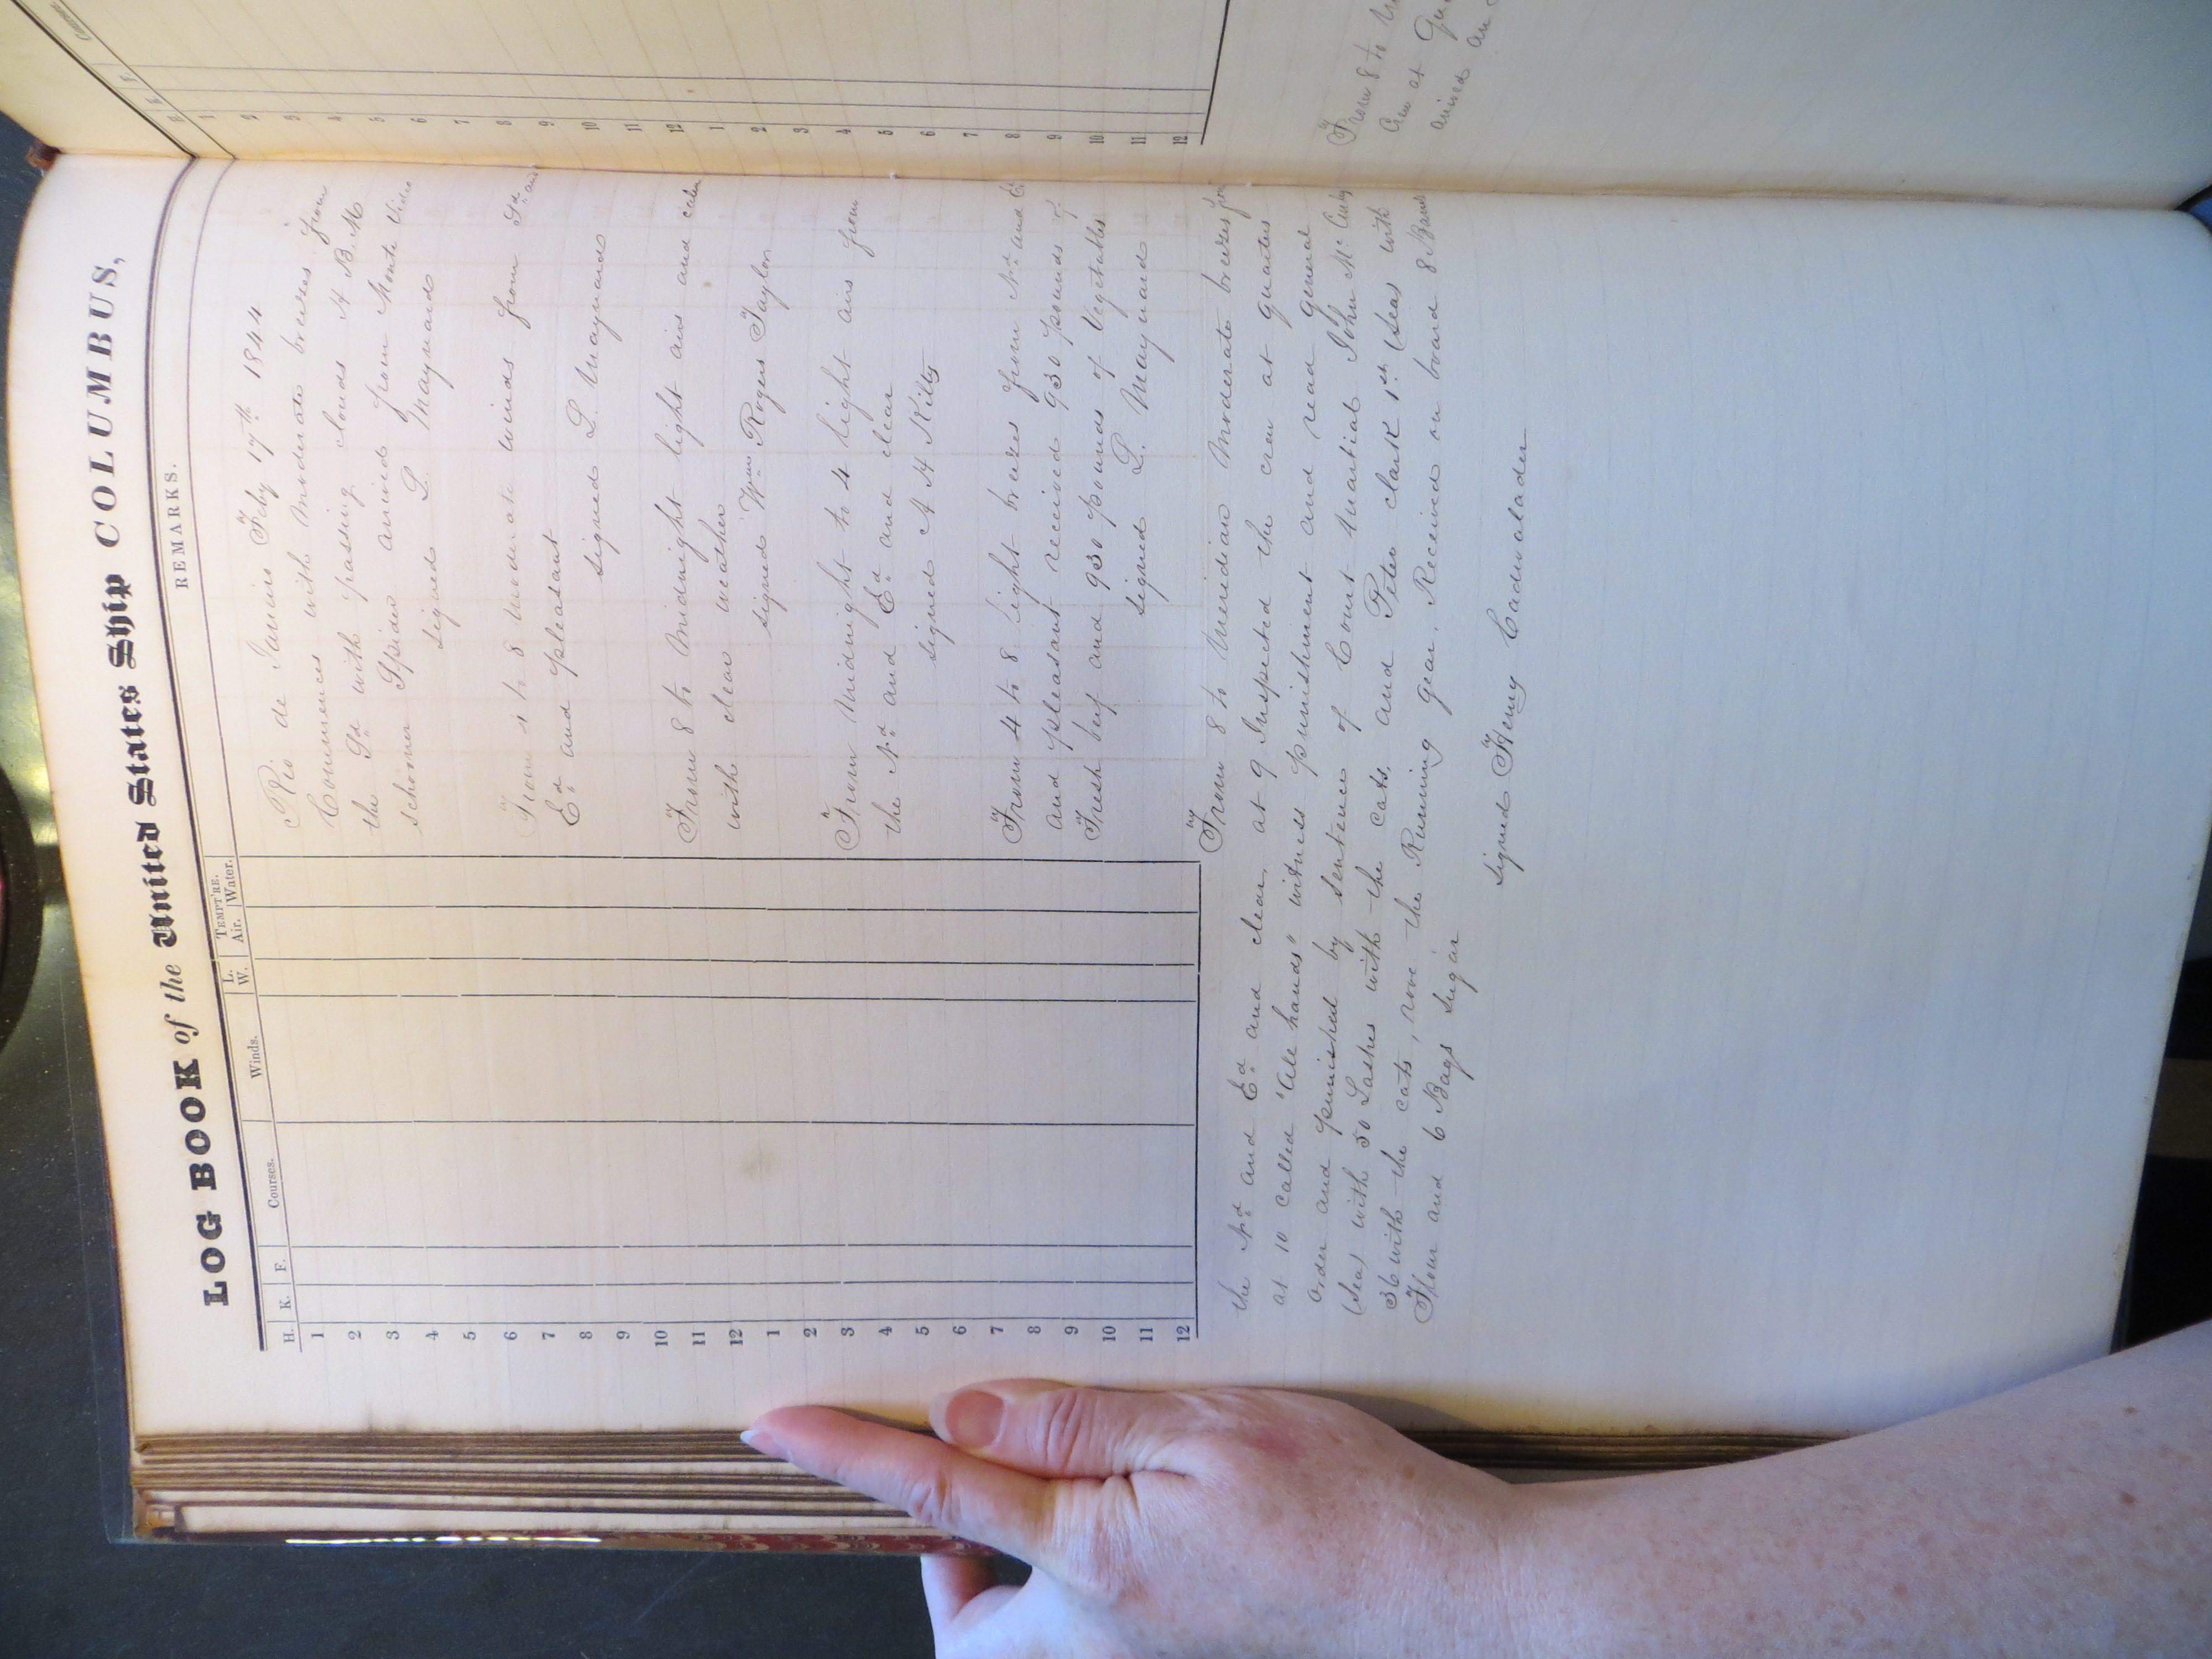 LOG BOOK of the United States Ship COLUMBUS,
H. K. F. Courses. Winds. L. W. TEMPT'RE. Air. Water. REMARKS.
1
2
3
4
5
6
7
8
9
10
11
12
1
2
3
4
5
6
7
8
9
10
11
12
Rio de Janeiro Feby 17th 1844
Commences with moderate breezes from
the Sd with passing clouds H B. M
schooner Spider arrived from Monte Video
signed L. Maynard
From 4 to 8 moderate winds from Sd and
Ed and pleasant
signed L. Maynard
From 8 to Midnight light airs and calm
with clear weather
signed Wm Rogers Taylor
From Midnight to 4 light airs from
the Nd and Ed and clear
signed A H Kilty
From 4 to 8 light breezes from Nd and Ed
and pleasant received 930 pounds of
Fresh beef and 930 pounds of Vegetables
signed L. Maynard
From 8 to Meridian Moderate breezes from
the Nd and Ed and clear, at 9 Inspected the crew at quarters
at 10 called "All hands" witness punishment and read general
order and punished by sentence of Court Martial John Mc
(Sea) with 50 Lashes with the cats, and Peter Clark 1st (Sea) with
36 with the cats, rove the Running gear. Received on board 8
Flour and 6 Bags Sugar
signed Henry Cadwalader
H. K. F.
1
2
3
4
5
6
7
8
9
10
11
12
1
2
3
4
5
6
7
8
9
10
11
12
From 8 to
Crew at
arrived an